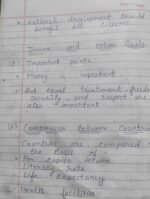 • National development should
benefit all citizens.
Income and Other Goals
(E) Important points
• Money is important
• But equal treatment, freedom
security, and respect are
also important
(F) Comparison Between Countries
Countries are compared
the basis of
• Per capita income
Literacy rate
• Life Expectancy
• Health facilities